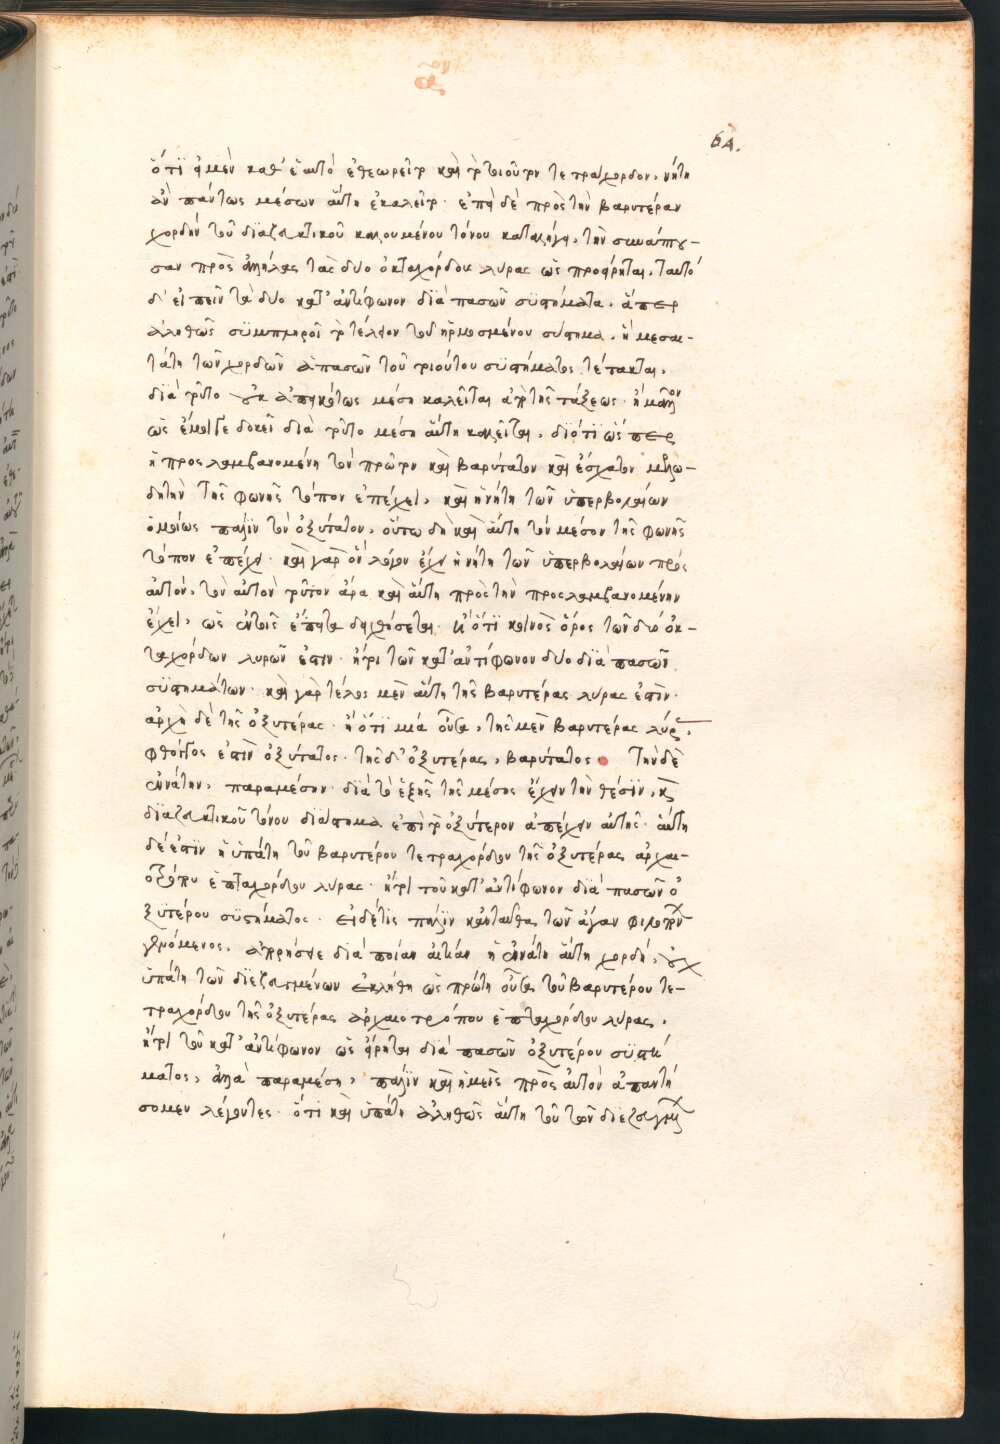 64.
ὅτι εἰ μὲν καθ' ἑαυτὸ ἐθεωρεῖτο καὶ τὸ τοιοῦτον τετράχορδον, νήτη
ἂν πάντως μέσων αὕτη ἐκαλεῖτο· ἐπεὶ δὲ πρὸς τὴν βαρυτέραν
χορδὴν τοῦ διαζευκτικοῦ καλουμένου τόνου καταλήγει, τὴν συνάπτου-
σαν πρὸς ἀλλήλας τὰς δύο ὀκταχόρδους λύρας ὡς προείρηται, ταυτὸ
δ' εἰπεῖν τὰ δύο κατ' ἀντίφωνον διὰ πασῶν συστήματα, ἅπερ
ἀληθῶς συμπληροῖ τὸ τέλειον τοῦ ἡρμοσμένου σύστημα, ἡ μεσαι-
τάτη τῶν χορδῶν ἁπασῶν τοῦ τοιούτου συστήματος τέτακται,
διὰ τοῦτο οὐκ ἀπεικότως μέση καλεῖται ἀπὸ τῆς τάξεως· ἢ μᾶλλον
ὡς ἔμοιγε δοκεῖ διὰ τοῦτο μέση αὕτη καλεῖται, διότι ὥσπερ
ἡ προσλαμβανομένη τὸν πρῶτον καὶ βαρύτατον καὶ ἔσχατον μελῳ-
δητὸν τῆς φωνῆς τόπον ἐπέχει, καὶ ἡ νήτη τῶν ὑπερβολαίων
ὁμοίως πάλιν τὸν ὀξύτατον, οὕτω δὴ καὶ αὕτη τὸν μέσον τῆς φωνῆς
τόπον ἐπέχει· καὶ γὰρ ὃν λόγον ἔχει ἡ νήτη τῶν ὑπερβολαίων πρὸς
αὐτὸν, τὸν αὐτὸν τοῦτον ἄρα καὶ αὕτη πρὸς τὴν προσλαμβανομένην
ἔχει, ὡς ἐν τοῖς ἔπειτα δειχθήσεται. ἢ ὅτι κοινὸς ὅρος τῶν δύο ὀκ-
ταχόρδων λυρῶν ἐστιν· ἤτοι τῶν κατ' ἀντίφωνον δύο διὰ πασῶν
συστημάτων· καὶ γὰρ τέλος μὲν αὕτη τῆς βαρυτέρας λύρας ἐστίν·
ἀρχὴ δὲ τῆς ὀξυτέρας· ἢ ὅτι μία οὖσα, τῆς μὲν βαρυτέρας λύρας,
φθόγγος ἐστὶν ὀξύτατος· τῆς δ' ὀξυτέρας, βαρύτατος. Τὴν δὲ
ἐννάτην, παραμέσην· διὰ τὸ ἑξῆς τῆς μέσης ἔχειν τὴν θέσιν, καὶ
διαζευκτικοῦ τόνου διάστημα ἐπὶ τὸ ὀξύτερον ἀπέχειν αὐτῆς· αὕτη
δέ ἐστιν ἡ ὑπάτη τοῦ βαρυτέρου τετραχόρδου τῆς ὀξυτέρας ἀρχαι-
οτρόπου ἑπταχόρδου λύρας· ἤτοι τοῦ κατ' ἀντίφωνον διὰ πασῶν ὀ-
ξυτέρου συστήματος. εἰ δέ τις πάλιν κἀνταῦθα τῶν ἄγαν φιλοπόνων
γενόμενος, διὰ ποίαν αἰτίαν ἡ ἐννάτη αὕτη χορδή, οὐχ
ὑπάτη τῶν διεζευγμένων ἐκλήθη ὡς πρώτη οὖσα τοῦ βαρυτέρου τε-
τραχόρδου τῆς ὀξυτέρας ἀρχαιοτρόπου ἑπταχόρδου λύρας,
ἤτοι τοῦ κατ' ἀντίφωνον ὡς εἴρηται διὰ πασῶν ὀξυτέρου συστή-
ματος, ἀλλὰ παραμέση, πάλιν καὶ ἡμεῖς πρὸς αὐτὸν ἀπαντή-
σομεν λέγοντες· ὅτι καὶ ὑπάτη ἀληθῶς αὕτη τοῦ τῶν διεζευγμένων